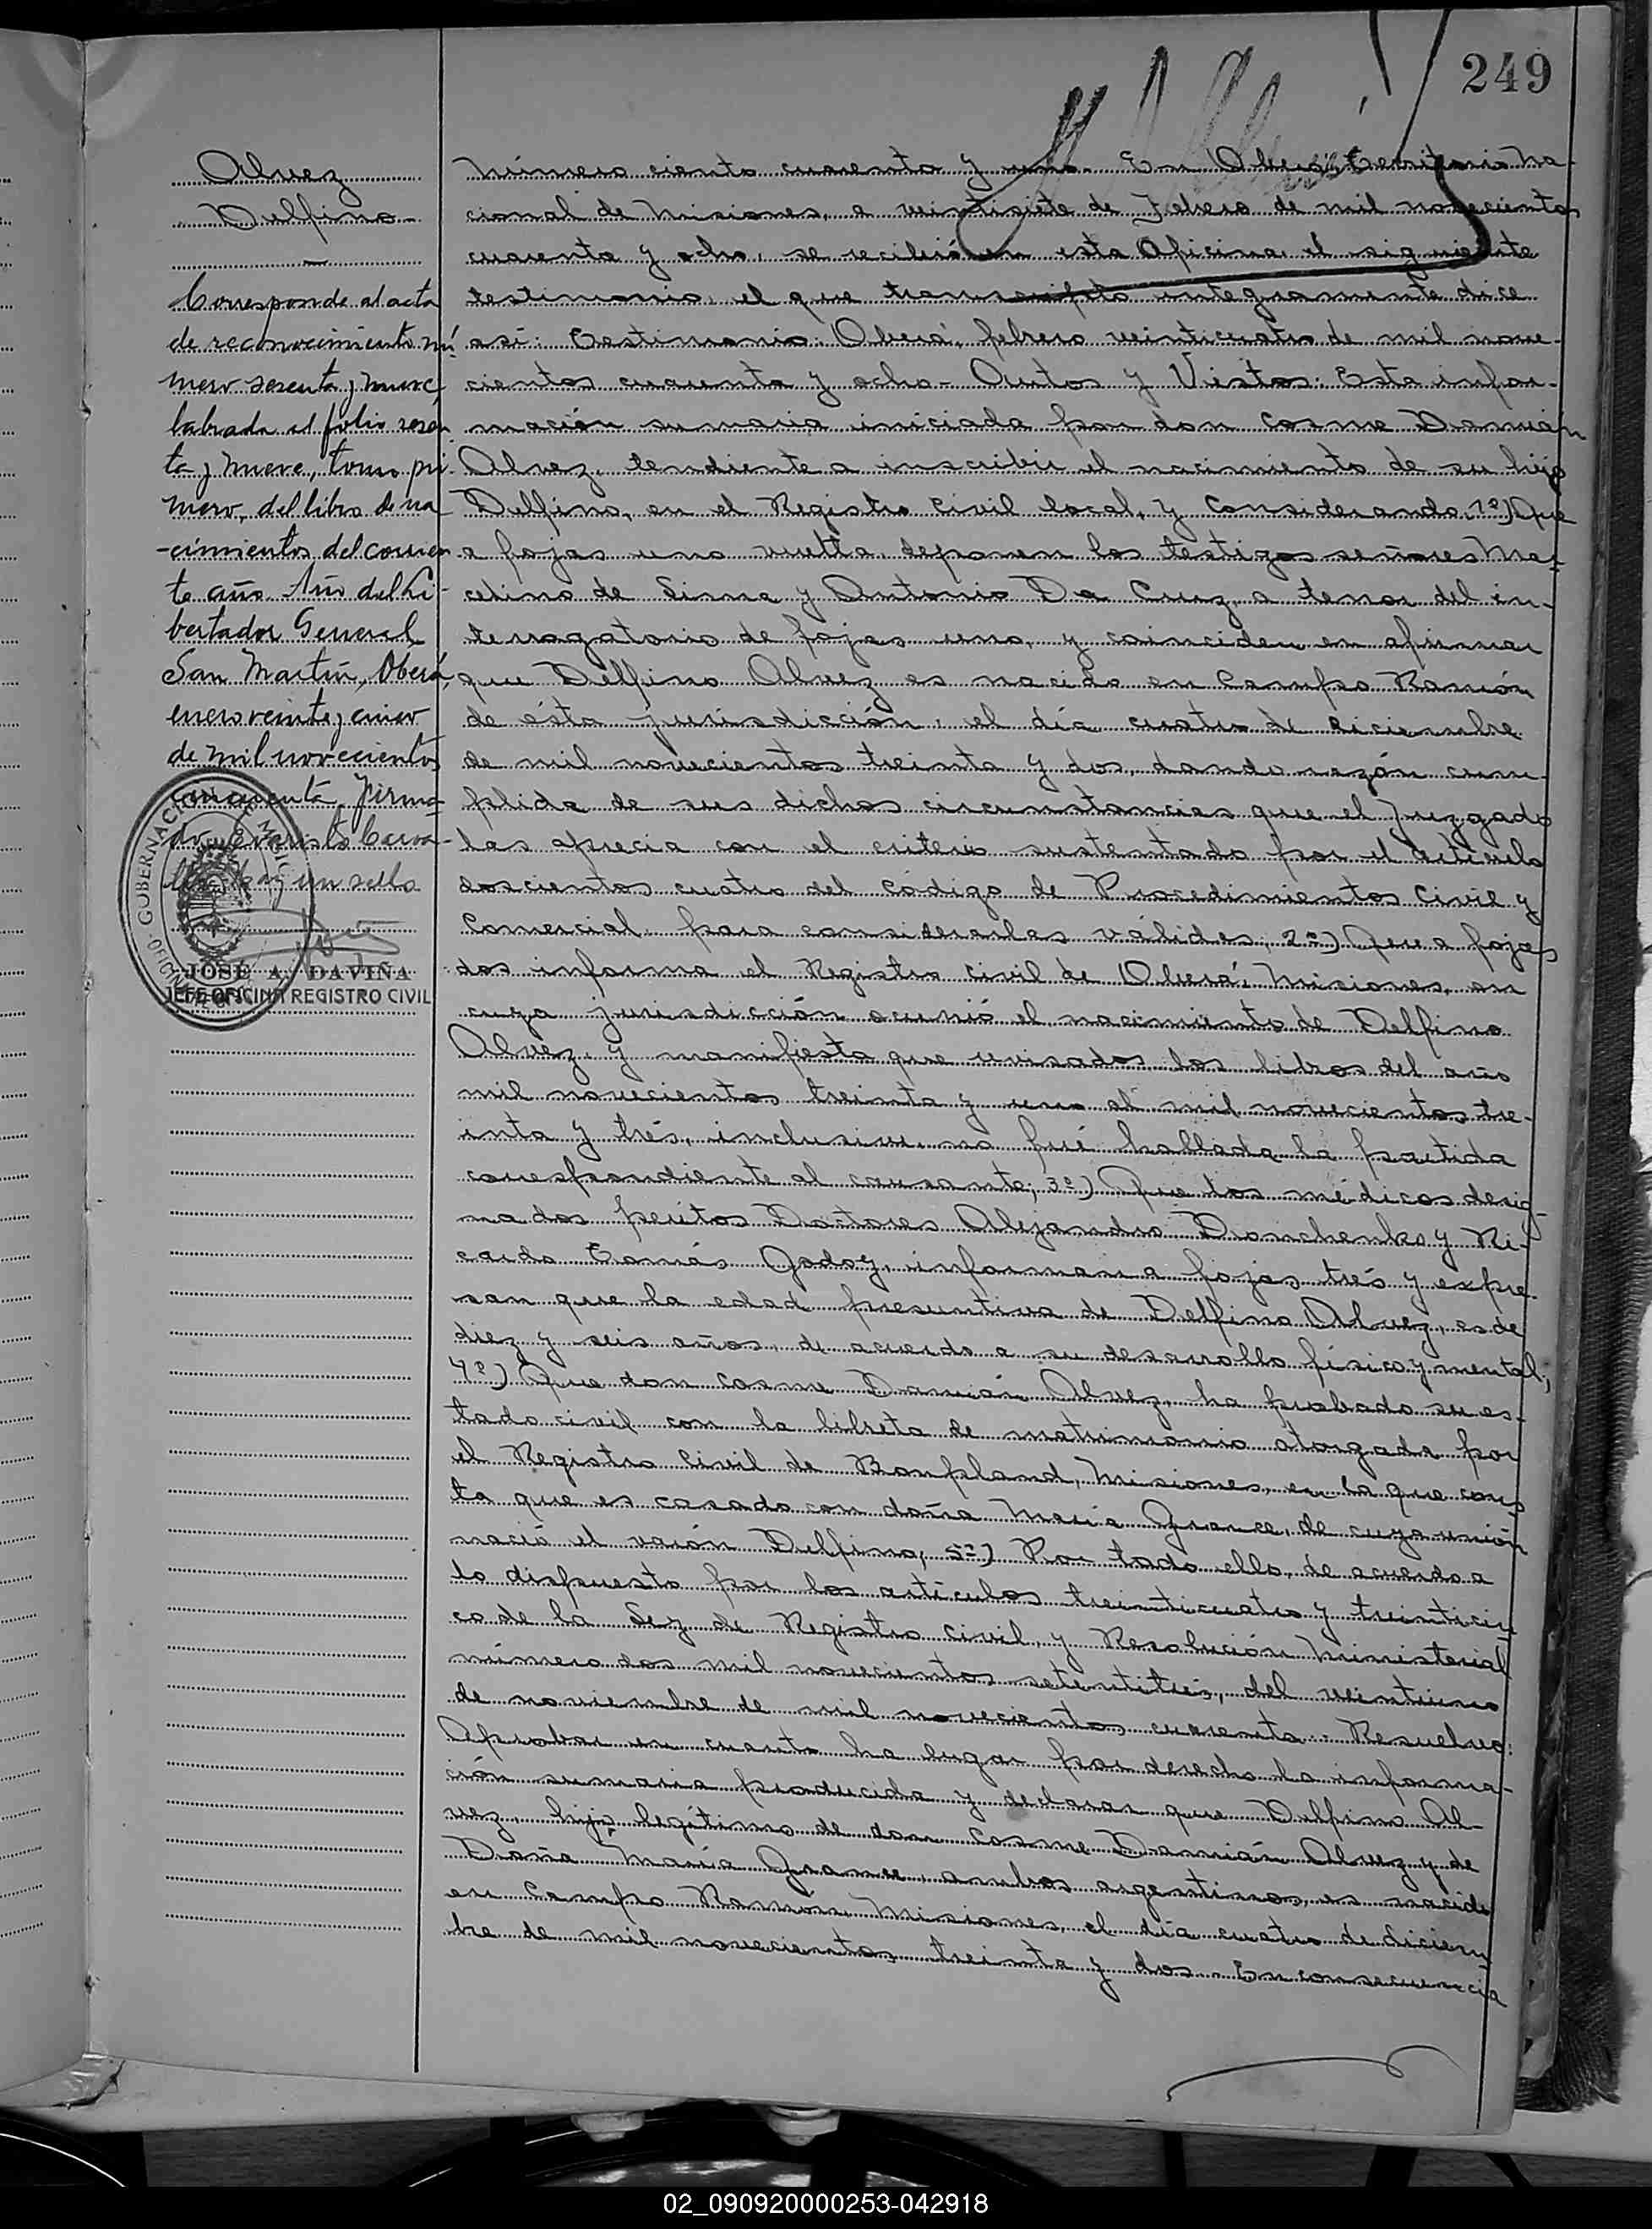 249
Alvez
Delfino-
Corresponde al acta
de reconocimiento nú-
mero sesenta y nueve,
labrada al folio sesen-
ta y nueve, tomo pri-
mero, del libro de na-
-cimientos del corrien-
te año. Año del Li-
bertador General
San Martín, Oberá,
enero veinte y cinco
de mil novecientos
cincuenta. Firma-
do: Evaristo
Hay un sello
GOBERNACION
JOSÉ A. DAVIÑA
JEFE OFICINA REGISTRO CIVIL
Número ciento cuarenta y uno. En Oberá, Territorio Na-
cional de Misiones, a veintisiete de Febrero de mil novecientos
cuarenta y ocho, se recibió en esta Oficina, el siguiente
testimonio, el que transcripto integramente dice
así: Testimonio: Oberá, febrero veinticuatro de mil nove-
cientos cuarenta y ocho- Autos y Vistos: Esta infor-
mación sumaria iniciada por don Cosme Damián
Alvez, tendiente a inscribir el nacimiento de su hijo
Delfino, en el Registro Civil local, y Considerando: 1º) Que
a fojas uno vuelta deponen los testigos señores Mar-
celino de Lima y Antonio Da Cruz, a tenor del in-
terrogatorio de fojas uno, y coinciden en afirmar
que Delfino Alvez es nacido en Campo Ramón
de ésta jurisdicción, el día cuatro de diciembre
de mil novecientos treinta y dos, dando razón cum-
plida de sus dichos circunstancias que el Juzgado
las aprecia con el criterio sustentado por el artículo
doscientos cuatro del código de Procedimientos Civil y
Comercial para considerarlas válidas; 2º) Que a fojas
dos informa el Registro Civil de Oberá, Misiones, en
cuya jurisdicción ocurrió el nacimiento de Delfino
Alvez, y manifiesta que revisados los libros del año
mil novecientos treinta y uno al mil novecientos tre-
inta y trés, inclusive, no fué hallada la partida
correspondiente al causante; 3º) Que los médicos desig-
nados peritos Doctores Alejandro Dionchenko y Ri-
cardo Tomás Godoy, informan a fojas trés y expre-
san que la edad presuntiva de Delfino Alvez, es de
diez y seis años, de acuerdo a su desarrollo físico y mental;
4º) Que don Cosme Damián Alvez, ha probado su es-
tado civil con la libreta de matrimonio otorgada por
el Registro Civil de Bonpland, Misiones, en la que cons-
ta que es casado con doña María Grance, de cuya unión
nació el varón Delfino; 5º) Por todo ello, de acuerdo a
lo dispuesto por los artículos treinticuatro y treinticin-
co de la Ley de Registro Civil, y Resolución Ministerial
número dos mil novecientos setentitrés, del veintiuno
de noviembre de mil novecientos cuarenta: Resuelvo:
Aprobar en cuanto ha lugar por derecho la informa-
ción sumaria producida y declarar que Delfino Al-
vez, hijo legítimo de don Cosme Damián Alvez y de
Doña María Grance, ambos argentinos, es nacido
en Campo Ramón, Misiones, el día cuatro de diciem-
bre de mil novecientos treinta y dos. En consecuencia
02_090920000253-042918